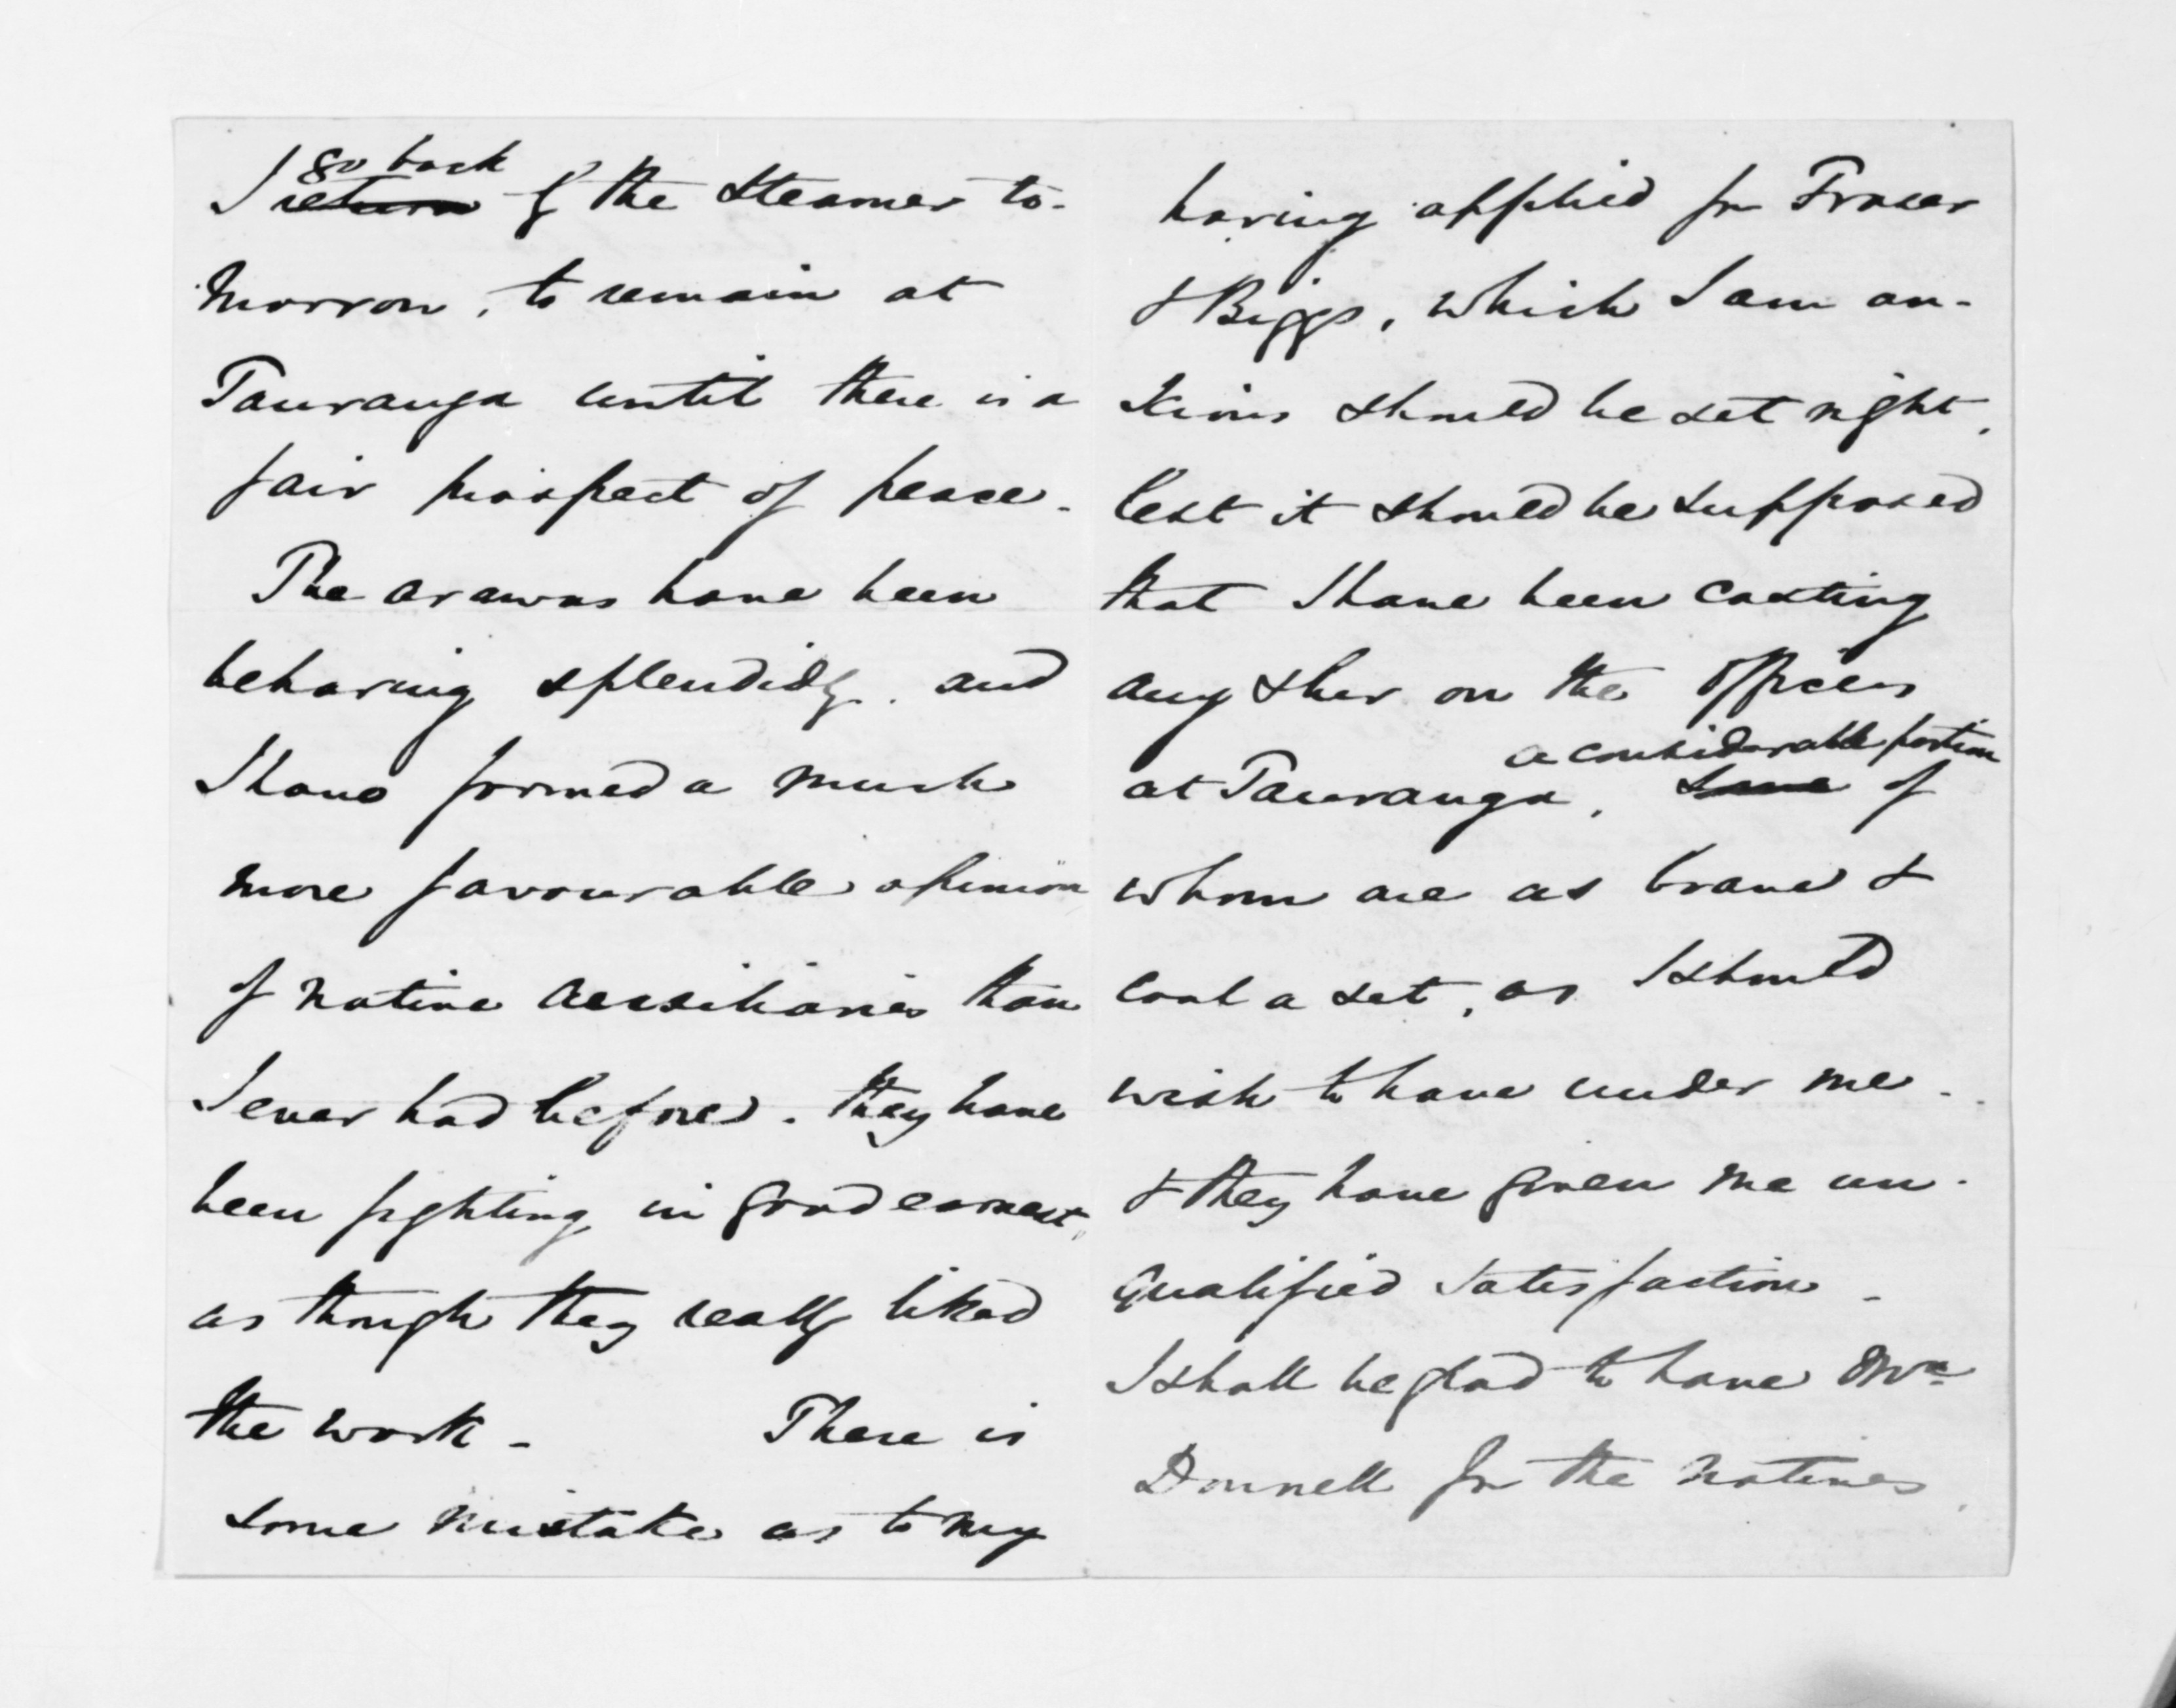 I go back by the steamer to-
morrow, to remain at
Tauranga until there is a
fair prospect of peace.
The Arawas have been
behaving splendidly. and
I have formed a much
more favourable opinion
of native auxiliaries than
I ever had before. they have
been fighting in good earnest,
as though they really liked
the work - There is
some mistake as to my
having applied for Fraser
& Biggs, which I am an-
xious should be set right,
lest it should be supposed
that I have been casting
any slur on the Officers
a considerable portion
at Tauranga, some of
whom are as brave &
cool a set, as I should
wish to have under me -
& they have given me un-
qualified satisfaction -
I shall be glad to have Mr
Donnell for the natives,